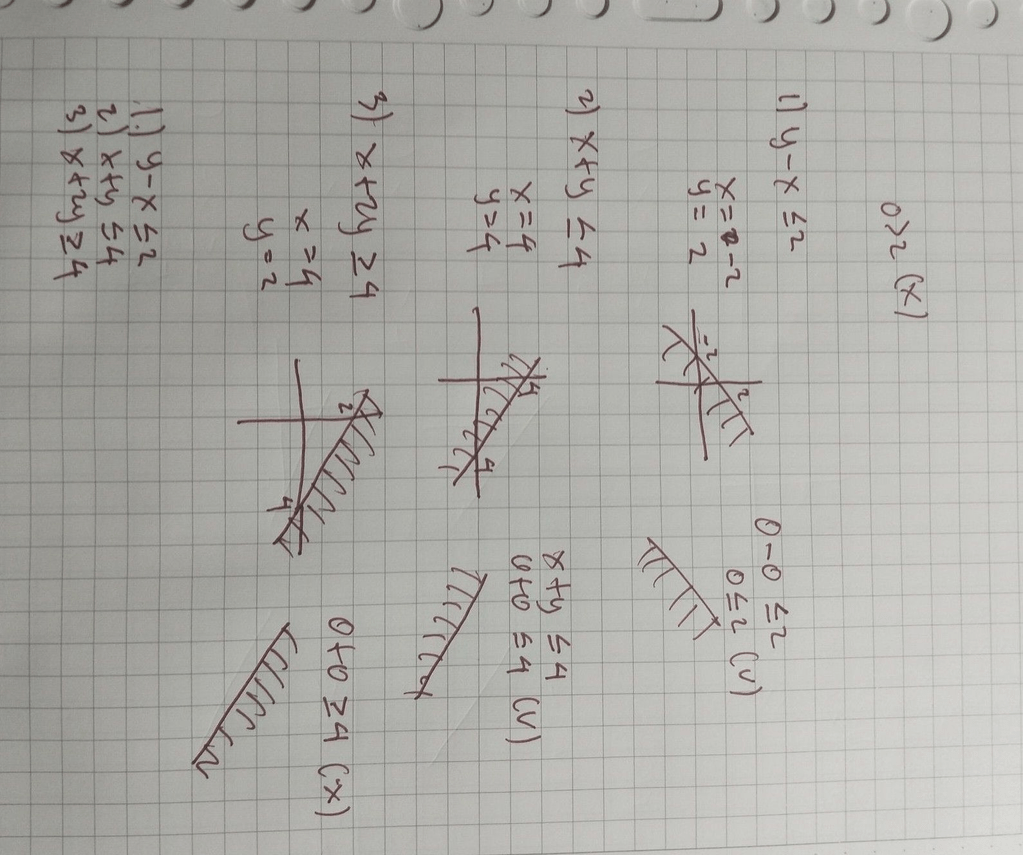 0>2 (x)
1) y-x ≤2
x=-2
y= 2
-2
2
0-0 ≤2
0≤2 (v)
2) x+y ≤4
x=4
y=4
4
4
x+y ≤4
0+0 ≤4 (v)
3) x+2y ≥4
x=4
y=2
2
4
0+0 ≥4 (x)
1.) y-x ≤2
2) x+y ≤4
3) x+2y ≥4